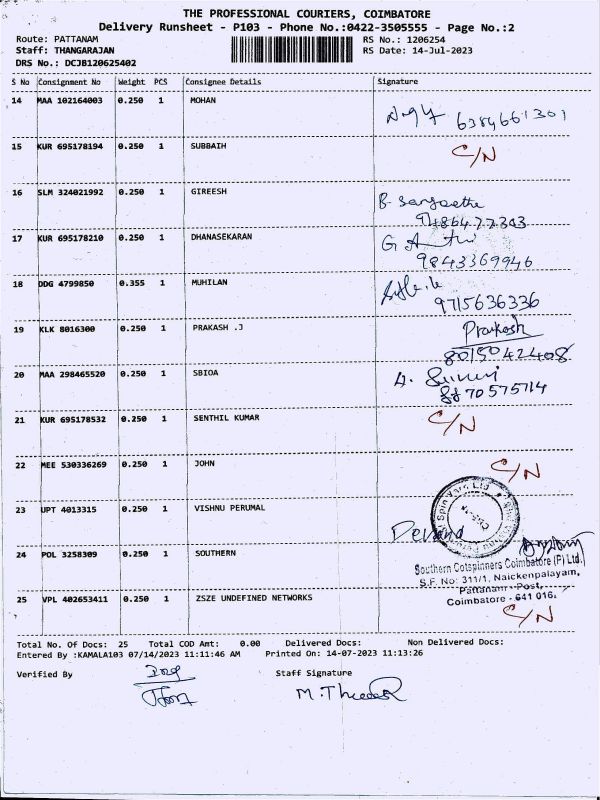 THE PROFESSIONAL COURIERS, COIMBATORE
Delivery Runsheet - P103 - Phone No.:0422-3505555 - Page No.:2
Route: PATTANAM
RS No.: 1206254
Staff: THANGARAJAN
RS Date: 14-Jul-2023
DRS No.: DCJB120625402
S No Consignment No Weight PCS Consignee Details Signature
14 MAA 102164003 0.250 1 MOHAN
6384661301
15 KUR 695178194 0.250 1 SUBBAIH C/N
16 SLM 324021992 0.250 1 GIREESH
17 KUR 695178210 0.250 1 DHANASEKARAN
9843369946
18 DDG 4799850 0.355 1 MUHILAN
9715636336
19 KLK 8016300 0.250 1 PRAKASH .J Prakash
8015042408
20 MAA 298465520 0.250 1 SBIOA
21 KUR 695178532 0.250 1 SENTHIL KUMAR C/N
22 MEE 530336269 0.250 1 JOHN C/N
23 UPT 4013315 0.250 1 VISHNU PERUMAL
24 POL 3258309 0.250 1 SOUTHERN
Southern Cotspinners Coimbatore (P) Ltd.
S.F. No: 311/1, Naickenpalayam,
Pattanam - Post,
Coimbatore - 641 016.
25 VPL 402653411 0.250 1 ZSZE UNDEFINED NETWORKS C/N
Total No. Of Docs: 25 Total COD Amt: 0.00 Delivered Docs: Non Delivered Docs:
Entered By :KAMALA103 07/14/2023 11:11:46 AM Printed On: 14-07-2023 11:13:26
Verified By Staff Signature